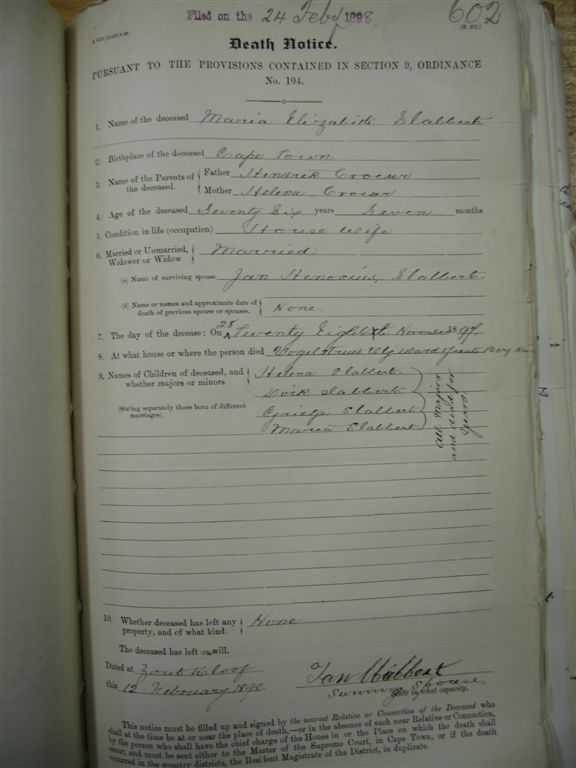 Filed on the 24 Feby 1898.
602
Death Notice.
PURSUANT TO THE PROVISIONS CONTAINED IN SECTION 9, ORDINANCE
No. 104.
1. Name of the deceased Maria Elizabeth Slabbert
2. Birthplace of the deceased Cape Town
3. Name of the Parents of the deceased. { Father Hendrik Croeser
Mother Helena Croeser
4. Age of the deceased Seventy Six years Seven months
5. Condition in life (occupation) House wife
6. Married or Unmarried, Widower or Widow } Married
(a) Name of surviving spouse Jan Slabbert
(b) Name or names and approximate date of death of previous spouse or spouses. } None.
7. The day of the decease: On 28 Twenty Eighth November 1897
8. At what house or where the person died Vogelstruis Vly ward Great Berg
9. Names of Children of deceased, and whether majors or minors
(Stating separately those born of different marriages).
Helena Slabbert
Slabbert
Grietje Slabbert
Maria Slabbert
All Majors
and
10. Whether deceased has left any property, and of what kind. } None
The deceased has left no will.
Dated at Zout Kloof
this 12 February 1898.
Jan Slabbert
Surviving Spouse
State in what capacity.
This notice must be filled up and signed by the nearest Relative or Connection of the Deceased who
shall at the time be at or near the place of death,—or in the absence of such near Relative or Connection,
by the person who shall have the chief charge of the House in or the Place on which the death shall
occur, and must be sent either to the Master of the Supreme Court, in Cape Town, or if the death
occurred in the country districts, the Resident Magistrate of the District, in duplicate.